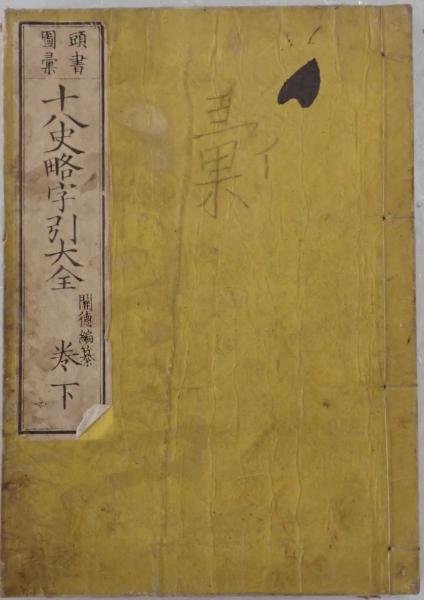 頭書
圖彙
十八史略字引大全
開德編纂
卷下
彙
イ